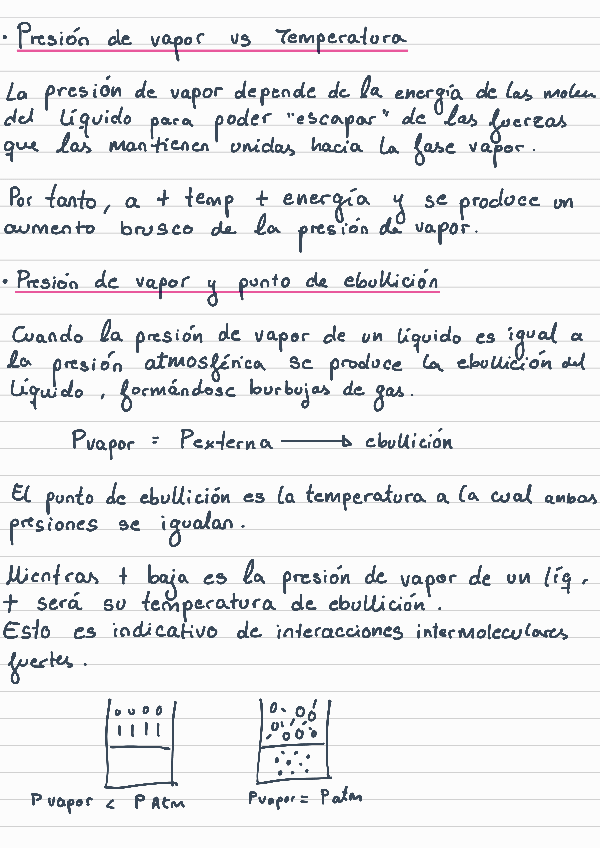 · Presión de vapor vs Temperatura
La presión de vapor depende de la energía de las molec
del líquido para poder "escapar" de las fuerzas
que las mantienen unidas hacia la fase vapor.
Por tanto, a + temp + energía y se produce un
aumento brusco de la presión de vapor.
· Presión de vapor y punto de ebullición
Cuando la presión de vapor de un líquido es igual a
la presión atmosférica se produce la ebullición del
líquido, formándose burbujas de gas.
Pvapor = Pexterna ⟶ ebullición
El punto de ebullición es la temperatura a la cual ambas
presiones se igualan.
Mientras + baja es la presión de vapor de un líq,
+ será su temperatura de ebullición.
Esto es indicativo de interacciones intermoleculares
fuertes.
Pvapor < PAtm Pvapor = Patm